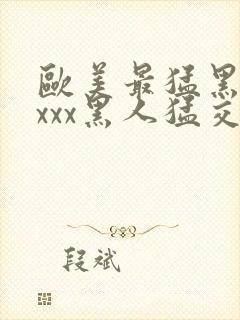 歐美最猛黑
xxx黑人猛交
段斌